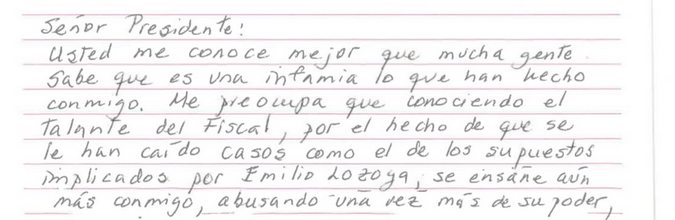 Señor Presidente:
Usted me conoce mejor que mucha gente.
Sabe que es una infamia lo que han hecho
conmigo. Me preocupa que conociendo el
talante del Fiscal, por el hecho de que se
le han caído casos como el de los supuestos
implicados por Emilio Lozoya, se ensañe aún
más conmigo, abusando una vez más de su poder,